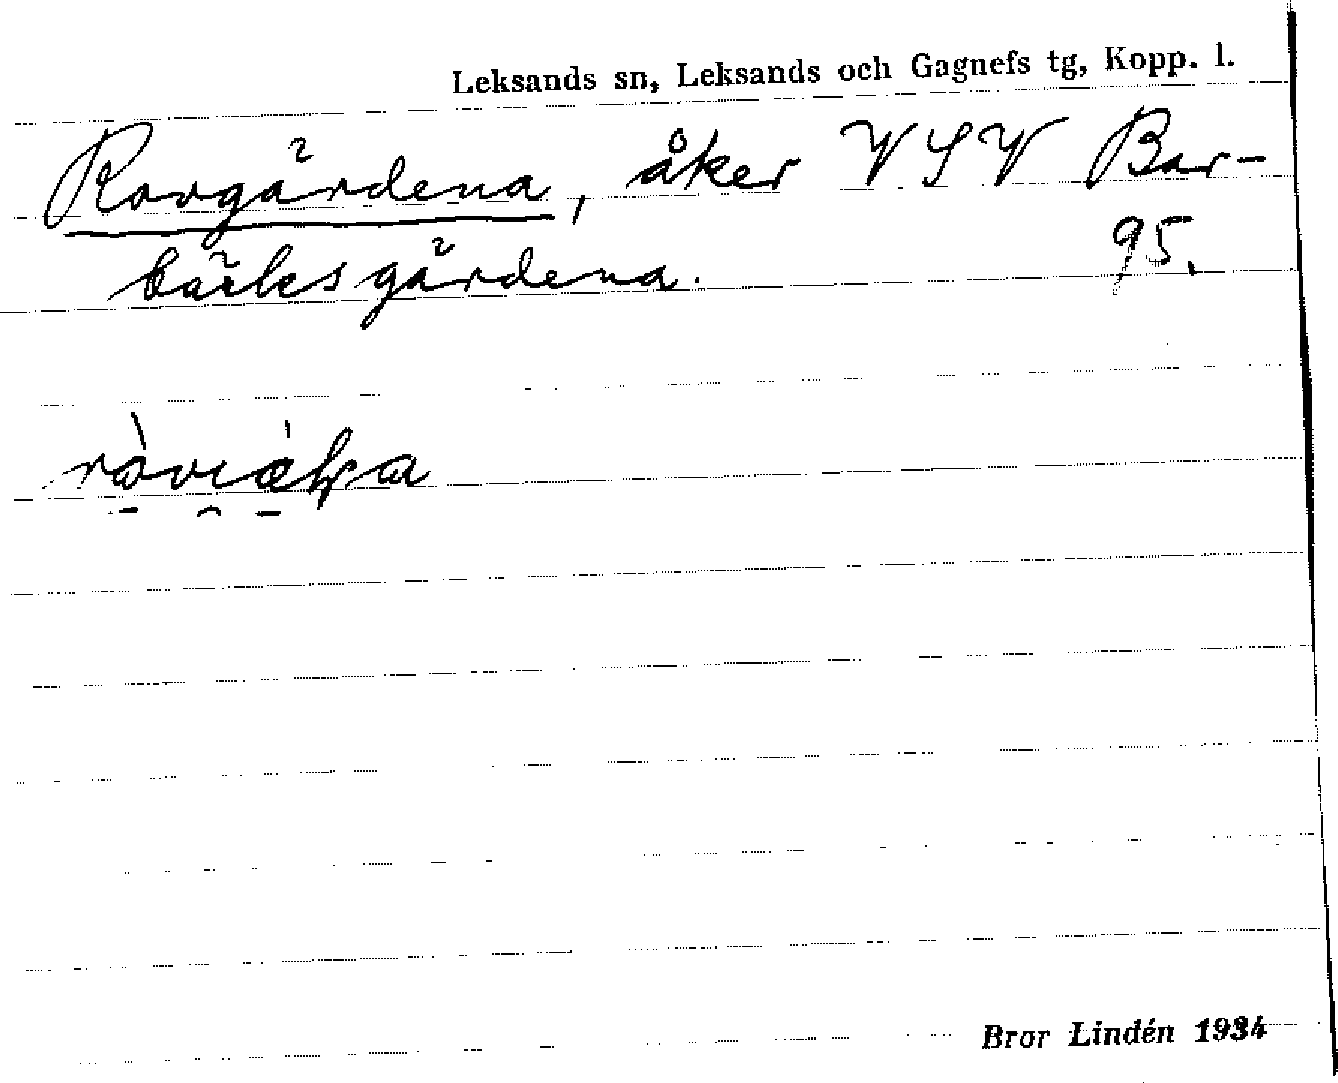 Leksands sn, Leksands och Gagnefs tg, Kopp. l.
Rovgärdena, åker VSV Bar-
bäcksgärdena. 95.
Bror Lindén 1934